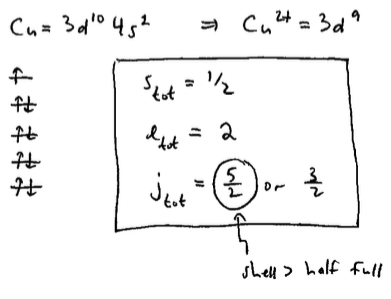 Cu = 3d¹⁰ 4s² ⇒ Cu²⁺ = 3d⁹
s_tot = 1/2
l_tot = 2
j_tot = 5/2 or 3/2
shell > half full